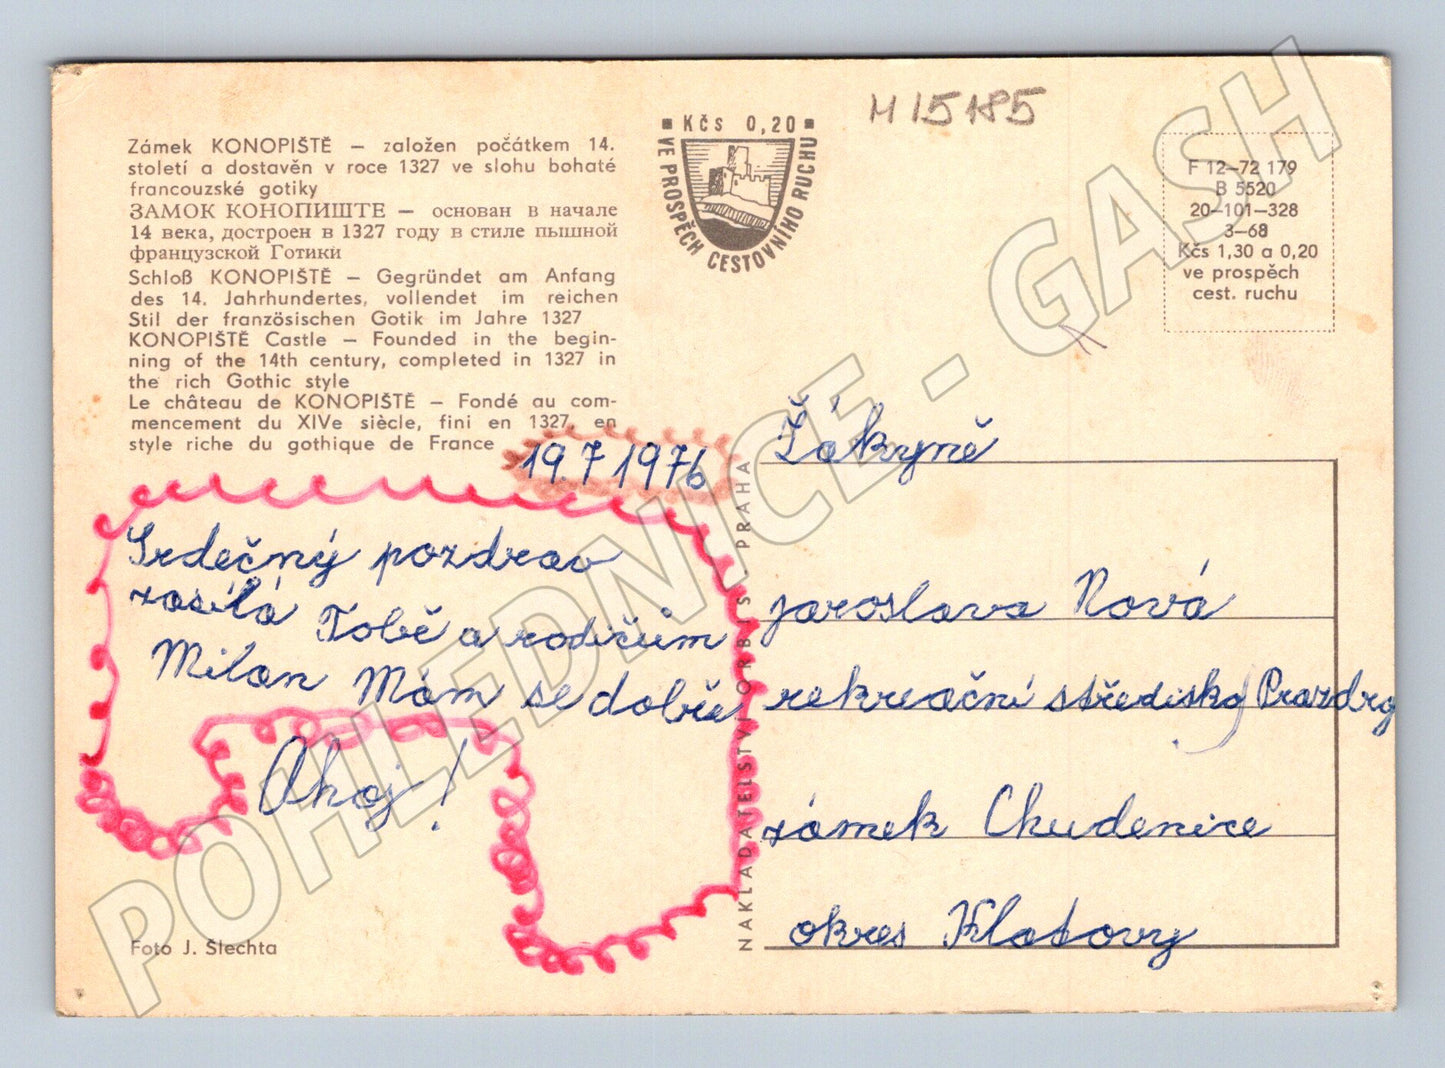 Zámek KONOPIŠTĚ – založen počátkem 14.
století a dostavěn v roce 1327 ve slohu bohaté
francouzské gotiky
ЗАМОК КОНОПИШТЕ – основан в начале
14 века, достроен в 1327 году в стиле пышной
французской Готики
Schloß KONOPIŠTĚ – Gegründet am Anfang
des 14. Jahrhundertes, vollendet im reichen
Stil der französischen Gotik im Jahre 1327
KONOPIŠTĚ Castle – Founded in the begin-
ning of the 14th century, completed in 1327 in
the rich Gothic style
Le château de KONOPIŠTĚ – Fondé au com-
mencement du XIVe siècle, fini en 1327, en
style riche du gothique de France
19.7 1976
Srdečný pozdrav
zasílá Tobě a rodičům
Milan Mám se dobře
Ahoj!
Foto J. Šlechta
Kčs 0,20
VE PROSPĚCH CESTOVNÍHO RUCHU
NAKLADATELSTVÍ ORBIS - PRAHA
M 15185
F 12–72 179
B 5520
20–101–328
3–68
Kčs 1,30 a 0,20
ve prospěch
cest. ruchu
Žákyně
jaroslava Nová
rekreační středisko Prazdroj
zámek Chudenice
okres Klatovy
POHLEDNICE - GASH